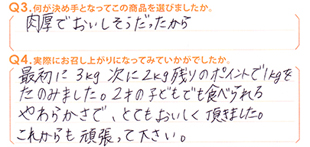 Q3.何が決め手となってこの商品を選びましたか。
肉厚でおいしそうだったから
Q4.実際にお召し上がりになってみていかがでしたか。
最初に3kg 次に2kg残りのポイントで1kgを
たのみました。2才の子どもでも食べられる
やわらかさで、とてもおいしく頂きました。
これからも頑張って下さい。